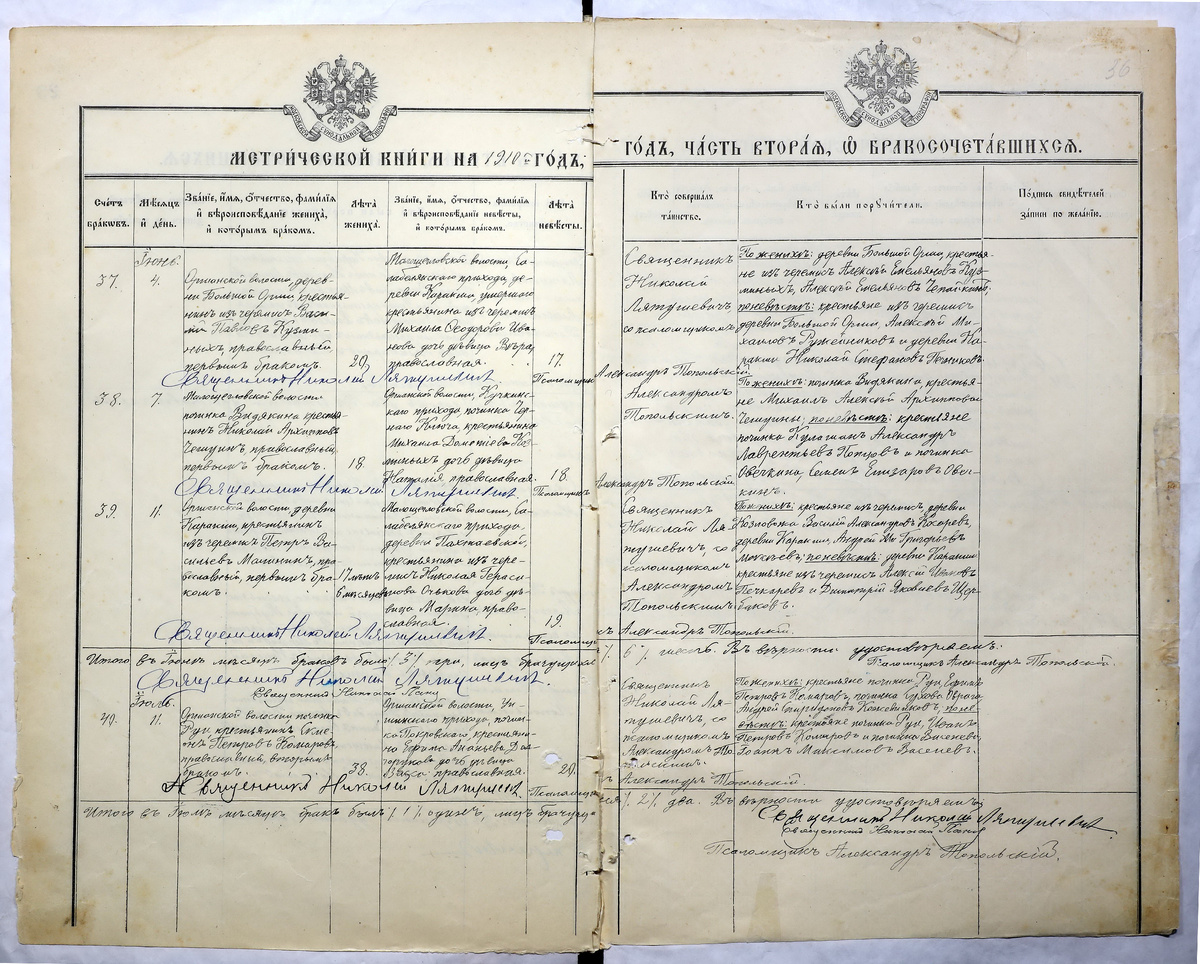 36
МЕТРИ́ЧЕСКОЙ КНИ́ГИ НА 1910 ГО́ДЪ,
ГО́ДЪ, ЧА́СТЬ ВТОРА́Я, Ѽ БРАКОСОЧЕТА́ВШИХСЯ.
Сче́тъ бра́ковъ.
Мѣ́сяцъ й де́нь.
Зва́нїе, и́мя, ѻ́тчество, фами́лїя й вѣроисповѣ́данїе жениха̀, й кото́рымъ бра́комъ.
Лѣ́та жениха̀.
Зва́нїе, и́мя, ѻ́тчество, фами́лїя й вѣроисповѣ́данїе невѣ́сты, й кото́рымъ бра́комъ.
Лѣ́та невѣ́сты.
Кто̀ соверша́лъ та́инство.
Кто̀ бы́ли порꙋчи́тели.
По́дпись свидѣ́телей за́писи по жела́нїю.
Іюнь.
37.
4.
Оршанской волости, дерев-
ни Большой Орши, крестья-
нинъ изъ черемисъ Васи-
лій Павловъ Кузми-
ныхъ, православный,
первымъ бракомъ.
20
волости, Са-
прихода, де-
ревни Каракши, умершаго
крестьянина изъ черемисъ
Михаила Ѳеодорова Ива-
нова дочь дѣвица Вѣра,
православная.
17.
Священникъ
Николай
Ляпушевичъ
со псаломщикомъ
Александромъ
Топольскимъ.
По женихѣ: деревни Большой Орши, крестья-
не изъ черемисъ Алексѣй Емельяновъ Куз-
миныхъ, Алексѣй Емельяновъ
по невѣстѣ: крестьяне изъ черемисъ
деревни Большой Орши, Алексѣй Ми-
хаиловъ Ружейниковъ и деревни Ка-
ракши Николай Стефановъ
Священникъ Николай Ляпушевичъ.
Псаломщикъ Александръ Топольскій.
38.
7.
волости
починка Видякина крестья-
нинъ Николай Архиповъ
православный,
первымъ бракомъ.
18.
Оршанской волости, Кучкин-
скаго прихода, починка Чер-
наго Ключа, крестьянина
Михаила Дометіева Каз-
миныхъ дочь дѣвица
Наталія православная.
18.
По женихѣ: починка Видякина, крестья-
не Михаилъ Алексѣй Архиповы
по невѣстѣ: крестьяне
починка Кулагина Александръ
Лаврентьевъ Попцовъ и починка
Овечкина, Семенъ Елизаровъ Овеч-
кинъ.
Священникъ Николай Ляпушевичъ.
Псаломщикъ Александръ Топольскій.
39.
11.
Оршанской волости, деревни
Каракши, крестьянинъ
изъ черемисъ Петръ Ва-
сильевъ Малининъ, пра-
вославный, первымъ бра-
комъ.
17 лѣтъ
6 мѣсяцевъ
волости, Са-
прихода
деревни Пахтаевской,
крестьянина изъ чере-
мисъ Николая Гераси-
мова Очькова дочь дѣ-
вица Марина, право-
славная.
19.
Священникъ
Николай Ля-
пушевичъ, со
псаломщикомъ
Александромъ
Топольскимъ
По женихѣ: крестьяне изъ черемисъ, деревни
Козловожа Василій Александровъ Косаревъ,
деревни Каракши, Андрей Григорьевъ
по невѣстѣ: деревни Каракши
крестьяне изъ черемисъ Алексѣй Ивановъ
Печкаревъ и Димитрій Яковлевъ Щер-
баковъ.
Священникъ Николай Ляпушевичъ.
Псаломщикъ Александръ Топольскій.
Итого въ Іюнѣ мѣсяцѣ браковъ было 3 три, лицъ брачущихся 6 шесть. Въ вѣрности удостовѣряемъ:
Священникъ Николай Ляпушевичъ.
Псаломщикъ Александръ Топольскій.
Священникъ Николай
Іюль.
40.
11.
Оршанской волости починка
Руи, крестьянинъ
Петровъ Комаровъ,
православный, вторымъ
бракомъ.
38.
Оршанской волости,
прихода, почин-
ка Покровскаго, крестьяни-
на Ефима Ананьева Дол-
горукова дочь дѣвица
Васса православная.
20.
Священникъ
Николай Ля-
пушевичъ, со
псаломщикомъ
Александромъ То-
польскимъ.
По женихѣ: крестьяне починка Руи, Ефимъ
Петровъ Комаровъ, починка
Андрей Спиридоновъ по не-
вѣстѣ: крестьяне починка Руи, Иванъ
Петровъ Комаровъ и починка
Іоаннъ Максимовъ Васеневъ.
Священникъ Николай Ляпушевичъ.
Псаломщикъ Александръ Топольскій.
Итого въ Іюлѣ мѣсяцѣ бракъ былъ 1 одинъ, лицъ брачущихся 2 два. Въ вѣрности удостовѣряемъ:
Священникъ Николай Ляпушевичъ.
Священникъ Николай
Псаломщикъ Александръ Топольскій.